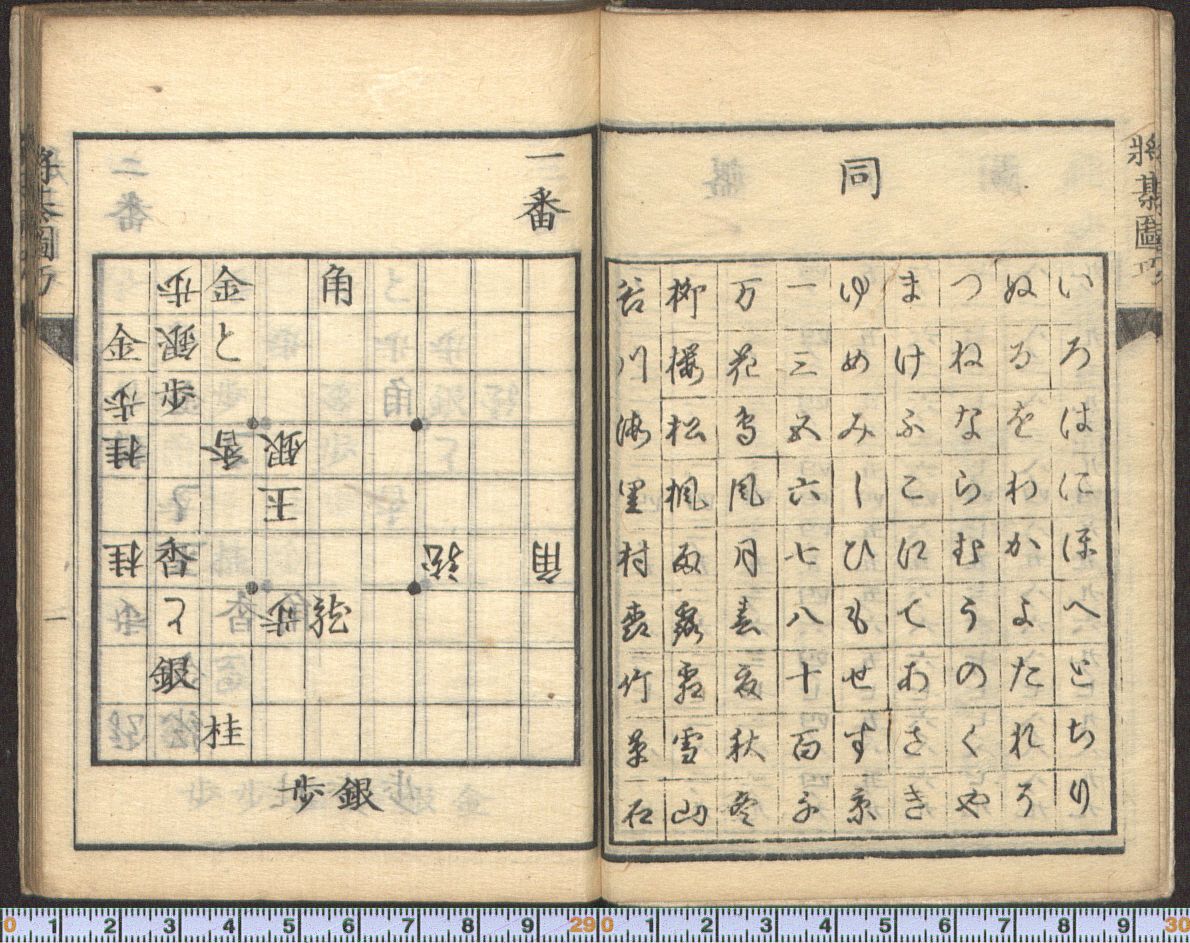 將棊圖巧
同
いろはにほへとちり
ぬるをわかよたれそ
つねならむうのくや
まけふこえてあさき
ゆめみしひもせす京
一三五六七八十百千
万花鳥風月春夜秋冬
柳櫻松楓雨露霜雪山
谷川海里村竹草石
一番
角
龍
角龍
銀玉歩
金と香桂
歩銀歩香と銀
金歩桂桂
銀歩
將棊圖巧
一